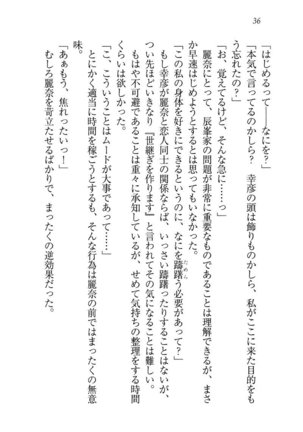 36
「はじめるって……なにを？」
「本気で言ってるのかしら？　幸彦の頭は飾りものかしら、私がここに来た目的をも
う忘れたの？」
「お、覚えてるけど、そんな急に……っ」
麗奈にとって、辰峯家の問題が非常に重要なものであることは理解できるが、まさ
か早速はじめようとするとは思ってもいなかった。
「この私の身体を好きにできるというのに、なにを躊躇う必要があって？」
もし幸彦が麗奈と恋人同士の関係ならば、いっさい躊躇ったりすることはないが、
つい先ほどいきなり『世継ぎを作ります』と言われてその気になることは難しい。
もはや不可避であることは重々に承知しているが、せめて気持ちの整理をする時間
くらいは欲しかった。
「こ、こういうことはムードが大事であって……」
とにかく適当に時間を稼ごうとするも、そんな行為は麗奈の前ではまったくの無意
味。
「あぁもう、焦れったいっ！」
むしろ麗奈を苛立たせるばかりで、まったくの逆効果だった。